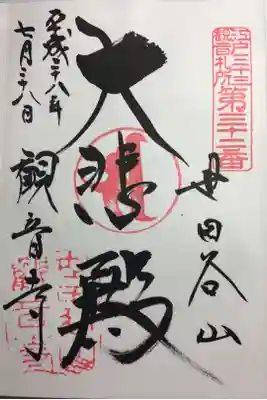 江戸三十三
観音札所
第三十二番
世田谷山
大悲殿
平成二十八年
七月二十八日
観音寺